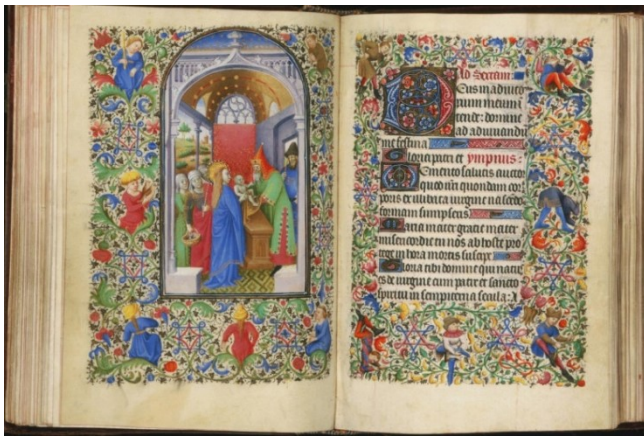 Ad Sextam:
Deus in adiuto
rium meum in
tende: domine
ad adiuvandū
me festina
Gloria patri et ympnus:
Memento salutis auctor
quod nr̄i quondam cor
poris ex illibata virgine nascēdo
formam sumpseris
Maria mater gracie mater
misericordie tu nos ab hoste pro
tege in hora mortis suscipe
Gloria tibi domine qui natus
es de virgine cum patre et sancto
spiritu in sempiterna secula: A